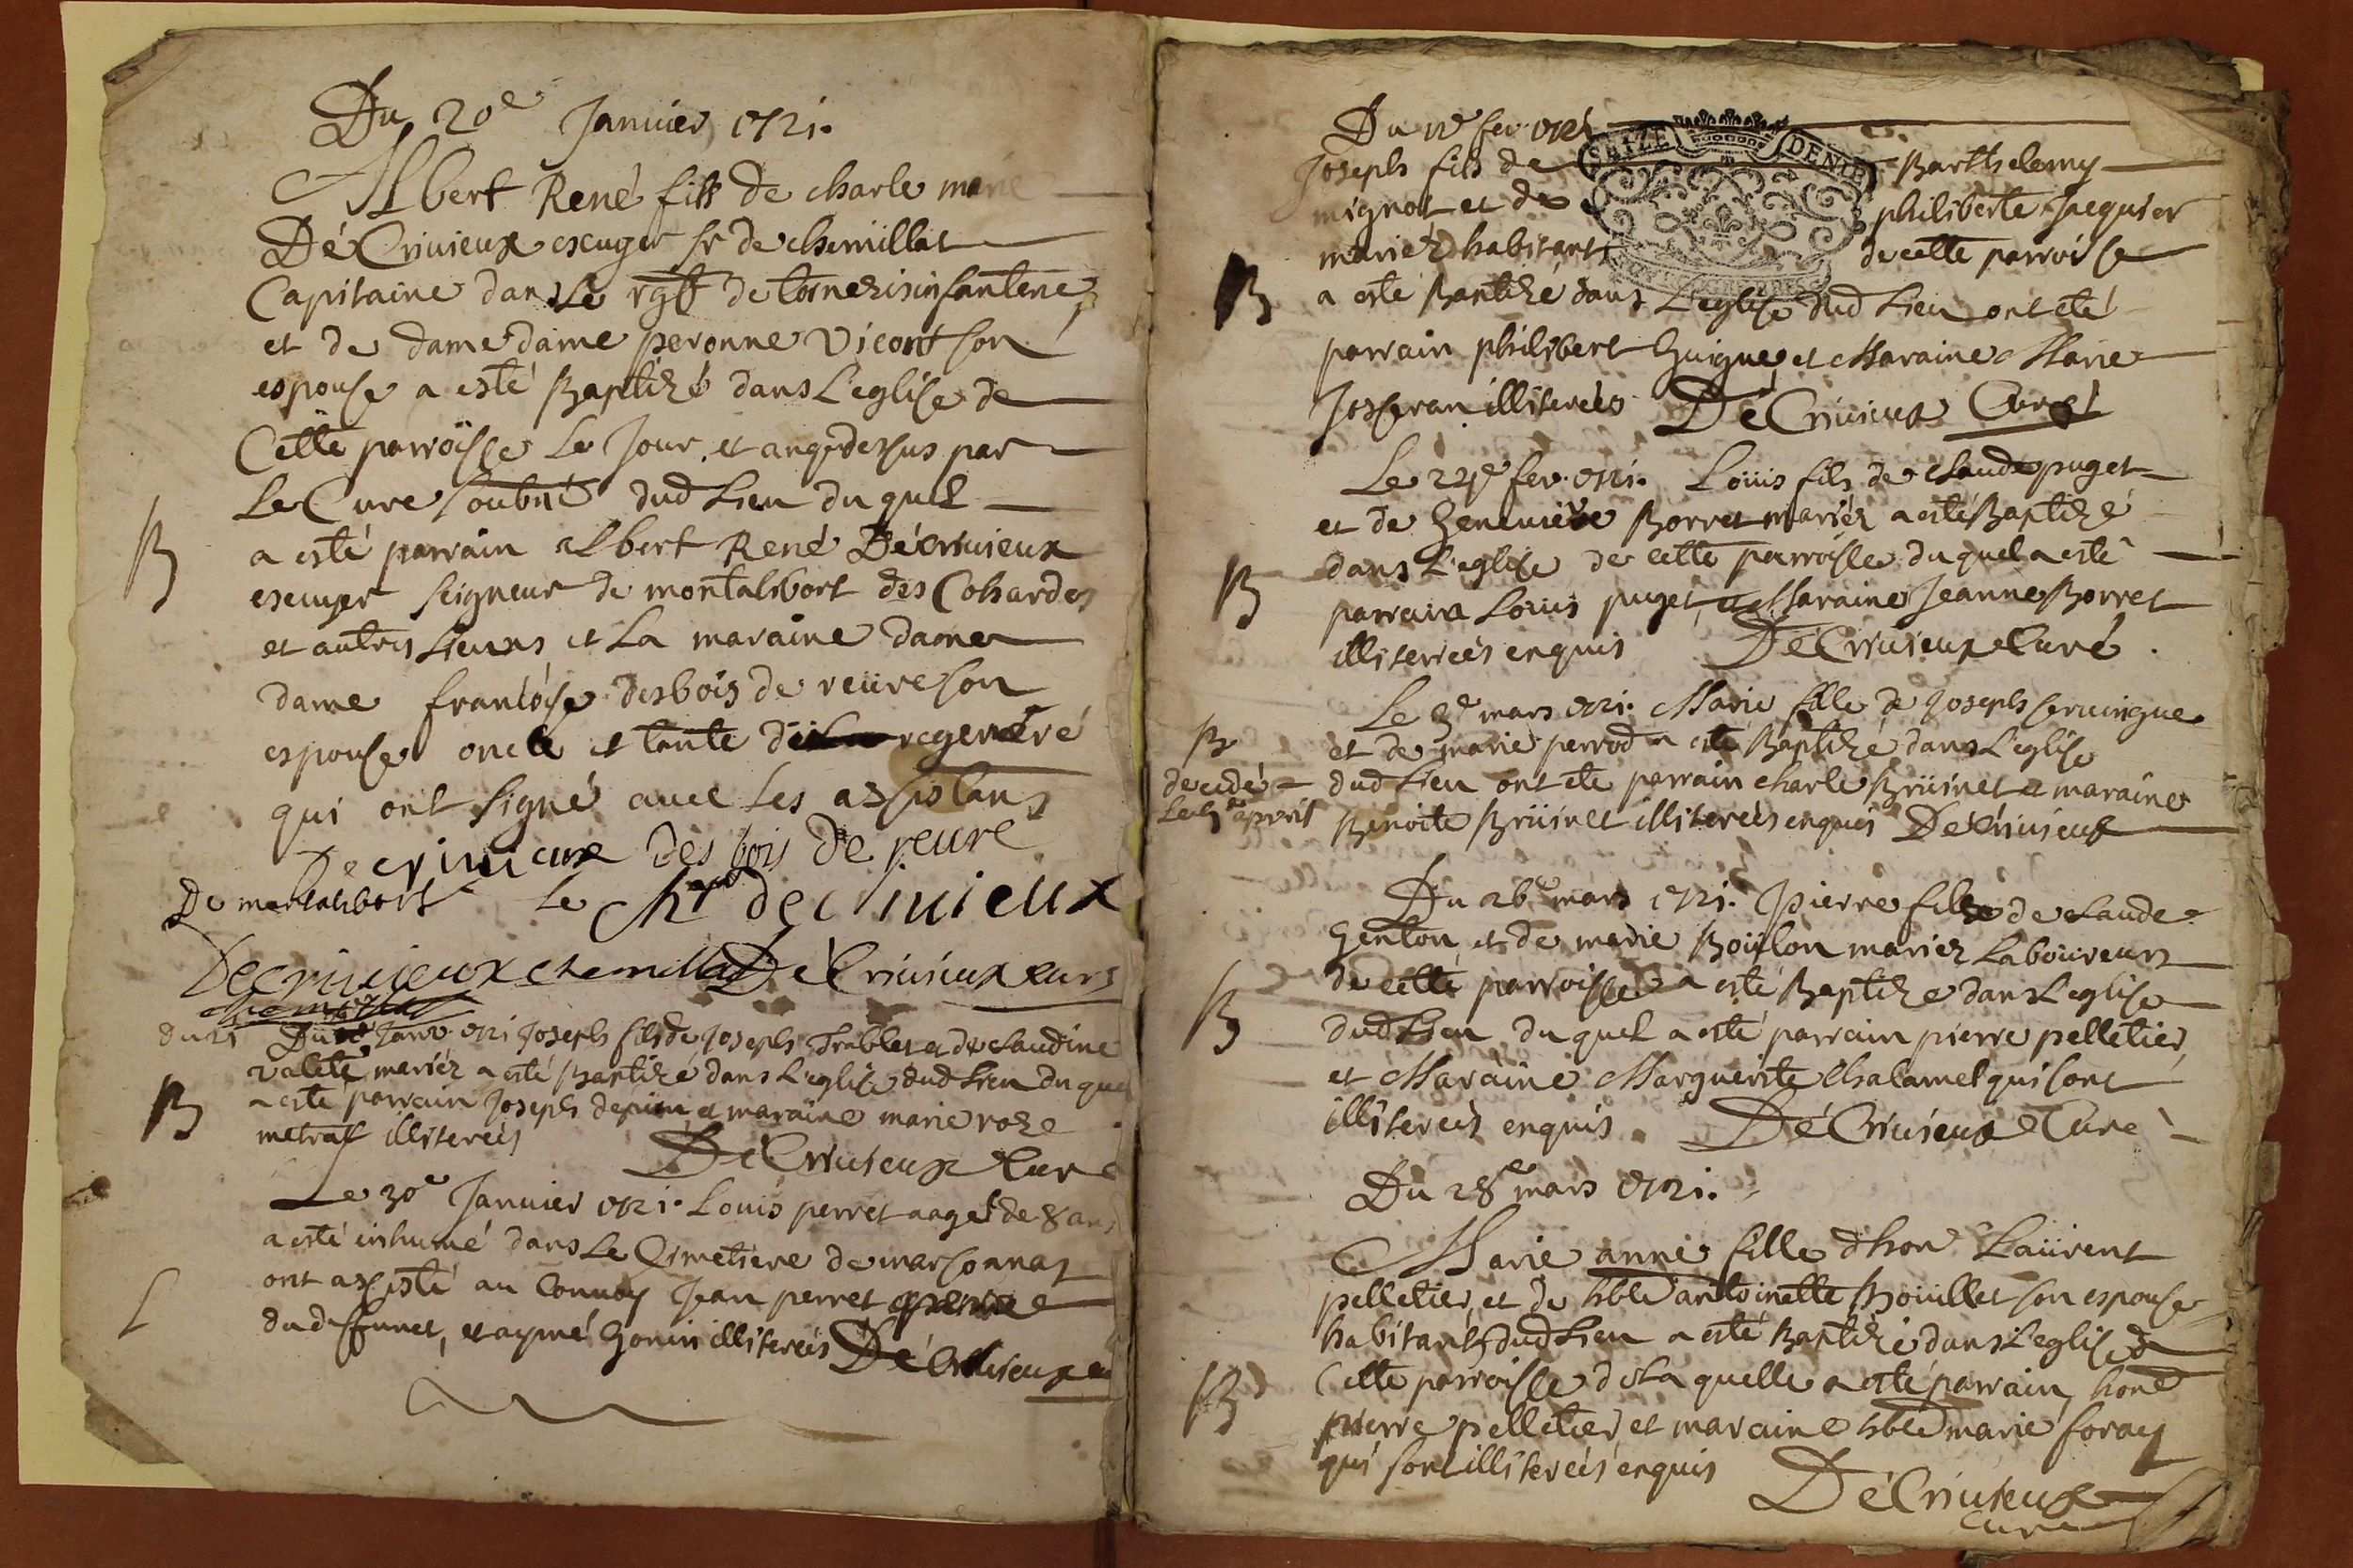 Du 20e Janvier 1721.
Albert René fils de charle marie
DéCrivieux escuyer sr de chemillat
Capitaine dans le rgt de infanterie
et de dame dame peronne Vicont son
espouse a esté Baptizé dans L'eglise de
Cette parroisse Le Jour et an q dessus par
Le Curé soubné dud Lieu du quel
B
a esté parrain Albert René Décrivieux
escuyer seigneur de montalibort des Cohardes
et autres Lieux et La maraine dame
dame françoise desbois de reüre son
espouse oncle et tante du regeneré
qui ont signé avec Les assistans
Decrivieux Des bois De reure
De montalibort Le chr decrivieux
Decrivieux chemillat DéCrivieux curé
chemillat
du 21 Du Janv. 1721 Joseph fils de Joseph Trablet et de claudine
valete mariéz a esté Baptizé dans L'eglise dud Lieu du quel
B
a esté parrain Joseph et maraine marie roze
metral illiterées
DéCrivieux Curé
Le 30e Janvier 1721. Louis perret aagé de 8 ans
a esté inhumé dans Le Cimetiere de marsonnas
L
ont assisté au Convoy Jean perret
du deffunct, et aymé Gonin illiterées DéCrivieux
Du fev. 1721
Joseph fils de Barthelemy
mignot et de philiberte Jacquier
mariéz habitants de cette parroisse
SEIZE DENIE
B
a esté Baptizé dans L'eglise dud Lieu ont eté
parrain philibert Guigue et Maraine Marie
Josseran illiterées DéCrivieux Curé
Le 22e fev. 1721. Loüis fils de claude puget
et de Genevieve Borret mariéz a esté Baptizé
B
dans L'eglise de cette parroisse du quel a esté
parrain Loüis puget et Maraine Jeanne Borret
illiterées enquis DéCrivieux Curé.
Le 3e mars 1721. Marie fille de Joseph servingue
B
et de marie perrod a esté Baptizé dans L'eglise
decedé
dud Lieu ont ete parrain charle Brüinet et maraine
Le apvril
Benoite Brüinet illiterées enquis DéCrivieux
Du 26e mars 1721. Pierre fils de claude
Genton et de marie Boüilon mariéz Laboureurs
B
de cette parroisse a esté Baptizé dans L'eglise
dud Lieu du quel a esté parrain pierre pelletier
et Maraine Marguerite Chalamel qui sont
illiterées enquis. DéCrivieux Curé
Du 28e mars 1721.
Marie anne fille d'hone Laürent
pelletier, et de hble antoinette Boüillet son espouse
habitants dud Lieu a esté Baptizé dans L'eglise de
B
Cette parroisse de La quelle a esté parrain, hone
pierre pelletier et maraine hble marie foray
qui sont illiterées enquis
DéCrivieux
curé